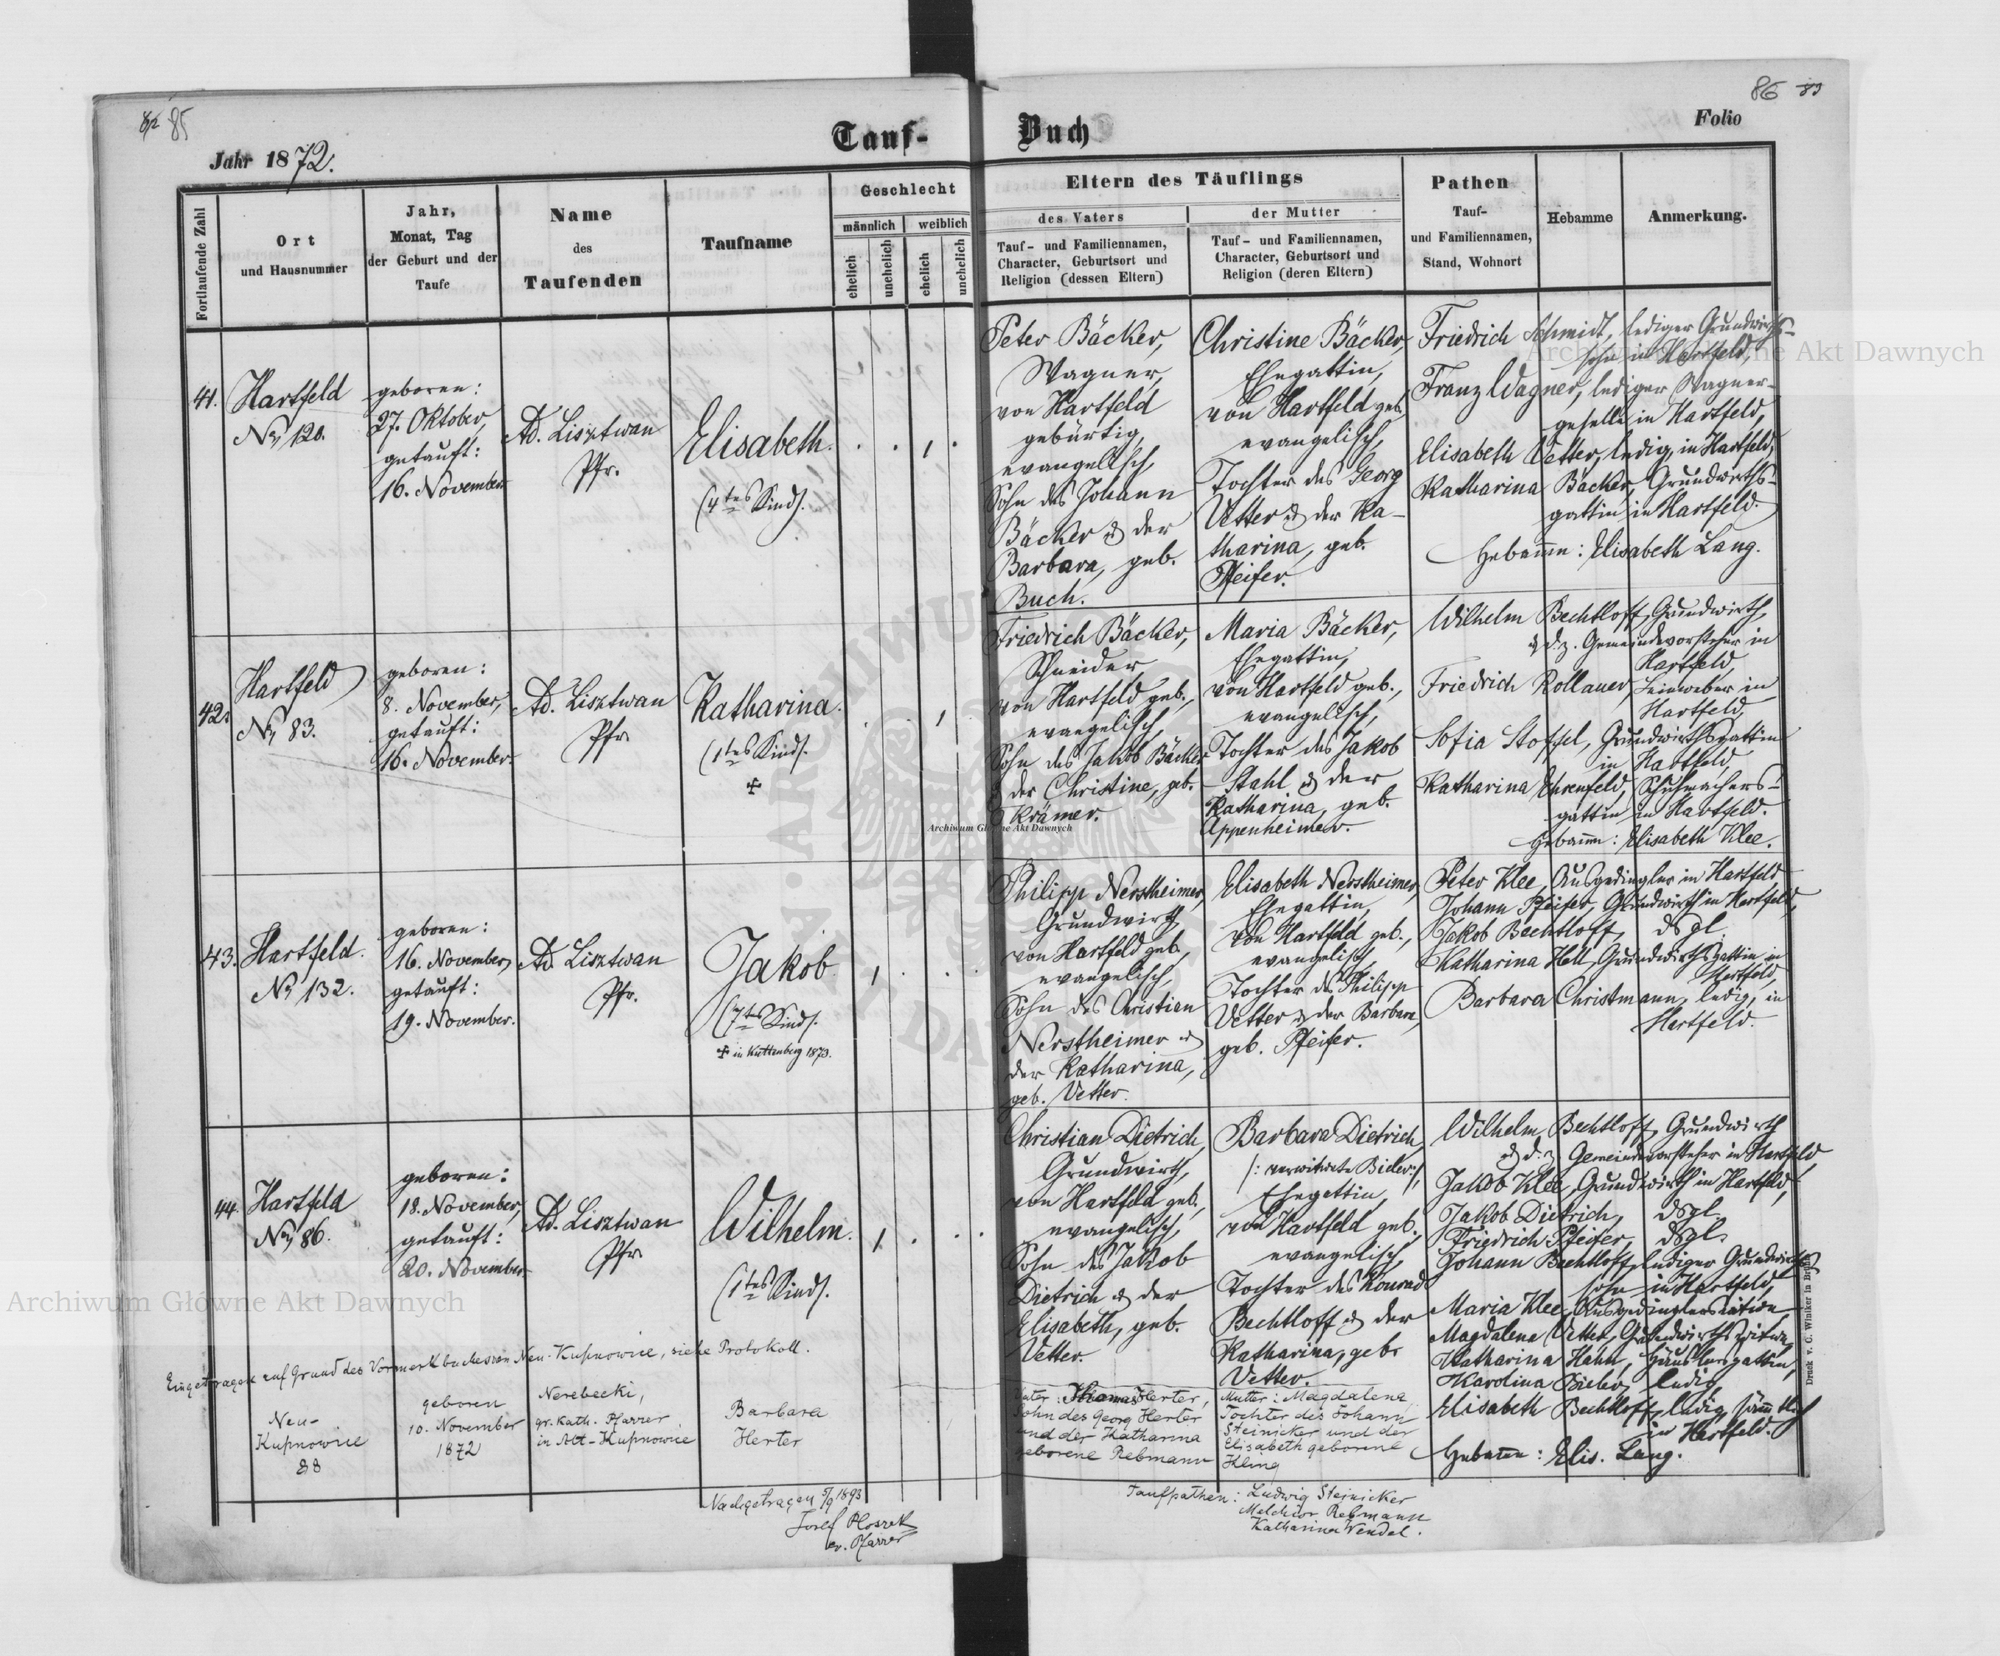 82 85
86 83
Tauf-Buch
Folio
Jahr 1872.
Fortlaufende Zahl
Ort
und Hausnummer
Jahr,
Monat, Tag
der Geburt und der
Taufe
Name
des
Taufenden
Taufname
Geschlecht
männlich
weiblich
ehelich
unehelich
ehelich
unehelich
Eltern des Täuflings
des Vaters
Tauf- und Familiennamen,
Character, Geburtsort und
Religion (dessen Eltern)
der Mutter
Tauf- und Familiennamen,
Character, Geburtsort und
Religion (deren Eltern)
Pathen
Tauf-
und Familiennamen,
Stand, Wohnort
Hebamme
Anmerkung.
41.
Hartfeld
No 120.
geboren:
27. Oktober,
getauft:
16. November.
Ad. Lisztwan
Pfr.
Elisabeth.
(4tes Kind).
Peter Bäcker,
Wagner,
von Hartfeld
gebürtig,
evangelisch,
Sohn des Johann
Bäcker & der
Barbara, geb.
Buch.
Christine Bäcker,
Ehegattin,
von Hartfeld geb.,
evangelisch,
Tochter des Georg
Vetter & der Ka-
tharina, geb.
Pfeifer.
Friedrich Schmidt, lediger Grundwirths-
sohn in Hartfeld,
Franz Wagner, lediger Wagner-
geselle in Hartfeld,
Elisabeth Vetter, ledig, in Hartfeld,
Katharina Bäcker, Grundwirths-
gattin in Hartfeld.
Hebamm: Elisabeth Lang.
42.
Hartfeld
No 83.
geboren:
8. November,
getauft:
16. November.
Ad. Lisztwan
Pfr.
Katharina.
(1tes Kind).
Friedrich Bäcker,
Schneider,
von Hartfeld geb.,
evangelisch,
Sohn des Jakob Bäcker
& der Christine, geb.
Krämer.
Maria Bäcker,
Ehegattin,
von Hartfeld geb.,
evangelisch,
Tochter des Jakob
Stahl & der
Katharina, geb.
Appenheimer.
Wilhelm Bechtloff, Grundwirth,
& d. z. Gemeindevorsteher in
Hartfeld,
Friedrich Kollauer, Leinweber in
Hartfeld,
Sofia Stoffel, Grundwirthsgattin
in Hartfeld,
Katharina Ehrenfeld, Schuhmachers-
gattin in Hartfeld.
Hebamm: Elisabeth Klee.
43.
Hartfeld.
No 132.
geboren:
16. November,
getauft:
19. November.
Ad. Lisztwan
Pfr.
Jakob
(7tes Kind).
✝ in Kuttenberg 1873.
Philipp Nerstheimer,
Grundwirth,
von Hartfeld geb.,
evangelisch,
Sohn des Christian
Nerstheimer &
der Katharina,
geb. Vetter.
Elisabeth Nerstheimer,
Ehegattin,
von Hartfeld geb.,
evangelisch,
Tochter des Philipp
Vetter & der Barbara,
geb. Pfeifer.
Peter Klee, Ausgedingler in Hartfeld
Johann Pfeifer, Grundwirth in Hartfeld,
Jakob Bechtloff, dsgl.
Katharina Hell, Grundwirthsgattin in
Hartfeld,
Barbara Christmann, ledig, in
Hartfeld.
44.
Hartfeld
No 86.
geboren:
18. November,
getauft:
20. November.
Ad. Lisztwan
Pfr.
Wilhelm.
(1tes Kind).
Christian Dietrich,
Grundwirth,
von Hartfeld geb.,
evangelisch,
Sohn des Jakob
Dietrich & der
Elisabeth, geb.
Vetter.
Barbara Dietrich,
/: verwitwete Bieler :/,
Ehegattin,
von Hartfeld geb.,
evangelisch,
Tochter des Konrad
Bechtloff & der
Katharina, geb.
Vetter.
Wilhelm Bechtloff, Grundwirth
& d. z. Gemeindevorsteher in Hartfeld,
Jakob Klee, Grundwirth in Hartfeld,
Jakob Dietrich, dsgl.
Friedrich Pfeifer, dsgl.
Johann Bechtloff, lediger Grundwirths-
sohn in Hartfeld,
Maria Klee, Ausgedinglersgattin
Magdalena Vetter, Grundwirthsgattin,
Katharina Hahn, Häuslersgattin,
Karolina Bieler, ledig
Elisabeth Bechtloff, ledig, sämmtlich
in Hartfeld.
Hebamm: Elis. Lang.
Eingetragen auf Grund des Vormerkbuches von Neu-Kupnowice, siehe Protokoll.
Neu-
Kupnowice
88
geboren
10. November
1872
Nerebecki,
gr. kath. Pfarrer
in Alt-Kupnowice
Barbara
Herter
Vater: Thomas Herter,
Sohn des Georg Herter
und der Katharina
geborene Rebmann
Mutter: Magdalena,
Tochter des Johann
Steinicker und der
Elisabeth geborene
Kling
Nachgetragen 5/9 1893
Josef Ploszek
ev. Pfarrer
Taufpathen: Ludwig Steinicker
Melchior Rebmann
Katharina Wendel.
Druck v. C. Winiker in Brünn
Archiwum Główne Akt Dawnych
Archiwum Główne Akt Dawnych
Archiwum Główne Akt Dawnych